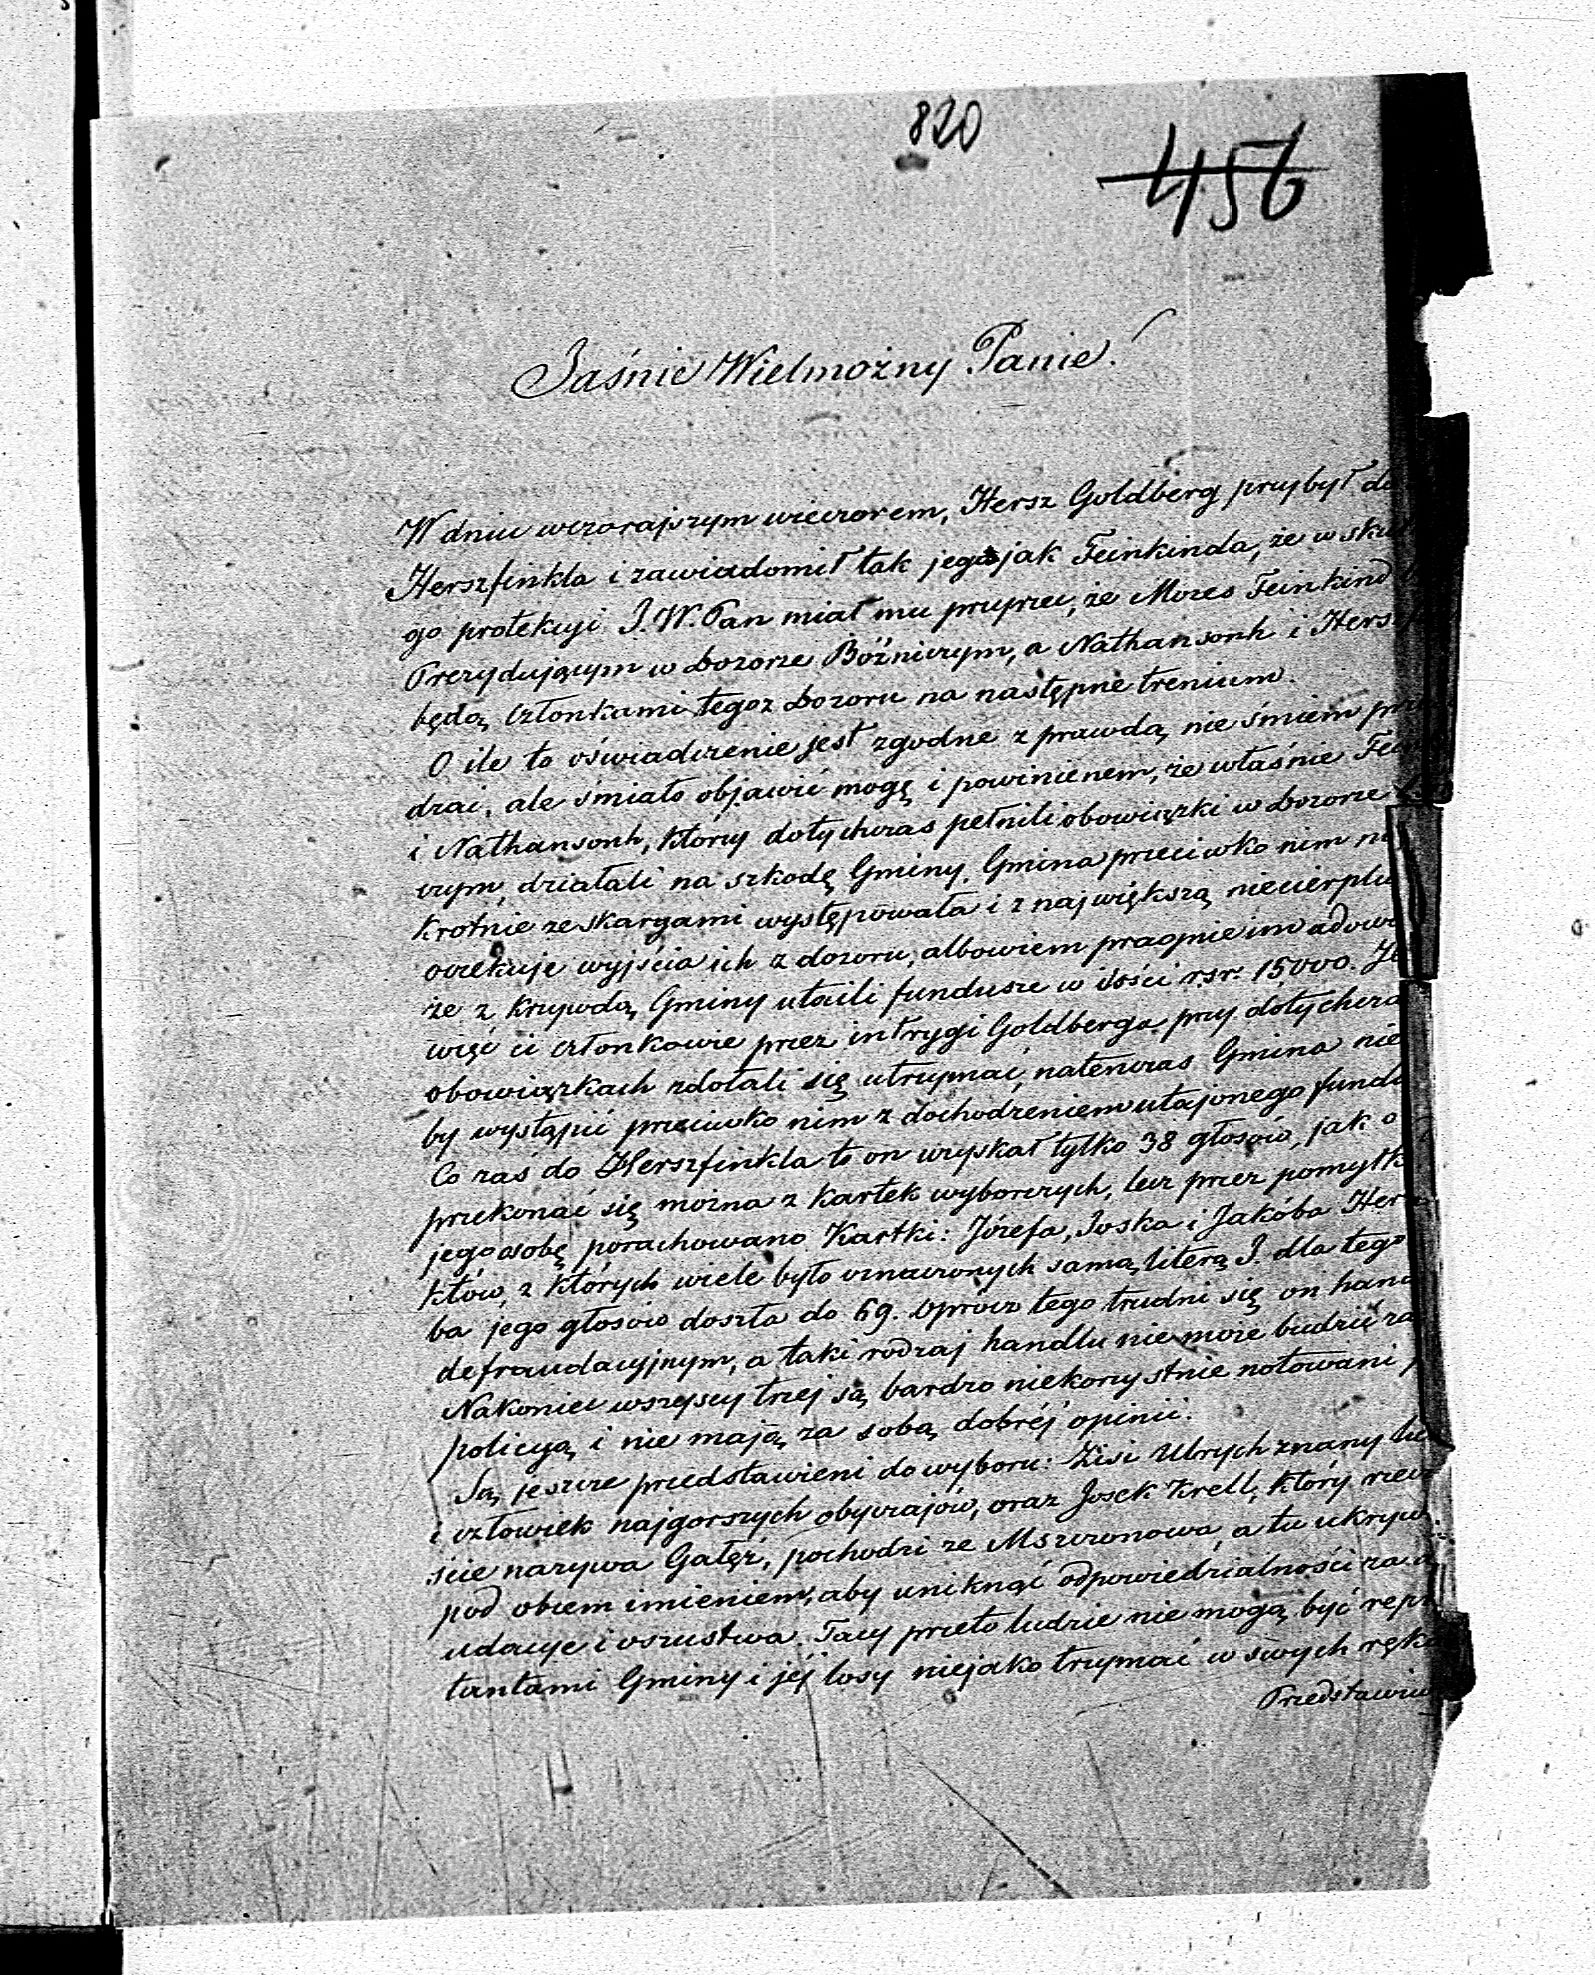 820
456
Jaśnie Wielmożny Panie!
W dniu wczorajszym wieczorem, Hersz Goldberg przybył do
Herszfinkla i zawiadomił tak jego jak Feinkinda, że w sku
go protekcyi J.W. Pan miał mu przyrzec, że Mozes Feinkind
Prezydującym w Dozorze Bóźniczym, a Nathansonh i Hersz
będą członkami tegoż Dozoru na następne trenium.
O ile to oświadczenie jest zgodne z prawdą nie śmiem
dzać, ale śmiało objawić mogę i powinienem, że właśnie Fein
i Nathansonh, którzy dotychczas pełnili obowiązki w Dozorze
czym, działali na szkodę Gminy. Gmina przeciwko nim
krotnie ze skargami występowała i z największą niecierpli
oczekuje wyjścia ich z dozoru, albowiem pragnie im udowo
że z krzywdą Gminy utaili fundusze w ilości rsr. 15,000. Je
więc ci członkowie przez intrygi Goldberga przy dotychcza
obowiązkach zdołali się utrzymać, natenczas Gmina nie
by wystąpić przeciwko nim z dochodzeniem utajonego fundu
Co zaś do Herszfinkla to on uzyskał tylko 38 głosów, jak o
przekonać się można z kartek wyborczych, lecz przez pomyłk
jego osobę porachowano Kartki: Józefa, Joska i Jakóba Hers
klów, z których wiele było oznaczonych samą literą J. dla tego
ba jego głosów doszła do 69. Oprócz tego trudni się on hand
defraudacyjnym, a taki rodzaj handlu nie może budzić za
Nakoniec wszyscy trzej są bardzo niekorzystnie notowani p
policyą i nie mają za sobą dobréj opinii.
Są jeszcze przedstawieni do wyboru: Zisi Ulrych znany
i człowiek najgorszych obyczajów, oraz Josek Krell, który rzecz
ście nazywa Gałęź, pochodzi ze Mszczonowa, a tu ukryw
pod obcem imieniem, aby uniknąć odpowiedzialności za
udacye i oszustwa. Tacy przeto ludzie nie mogą być repr
tantami Gminy i jéj losy niejako trzymać w swych ręka
Przedstawiw